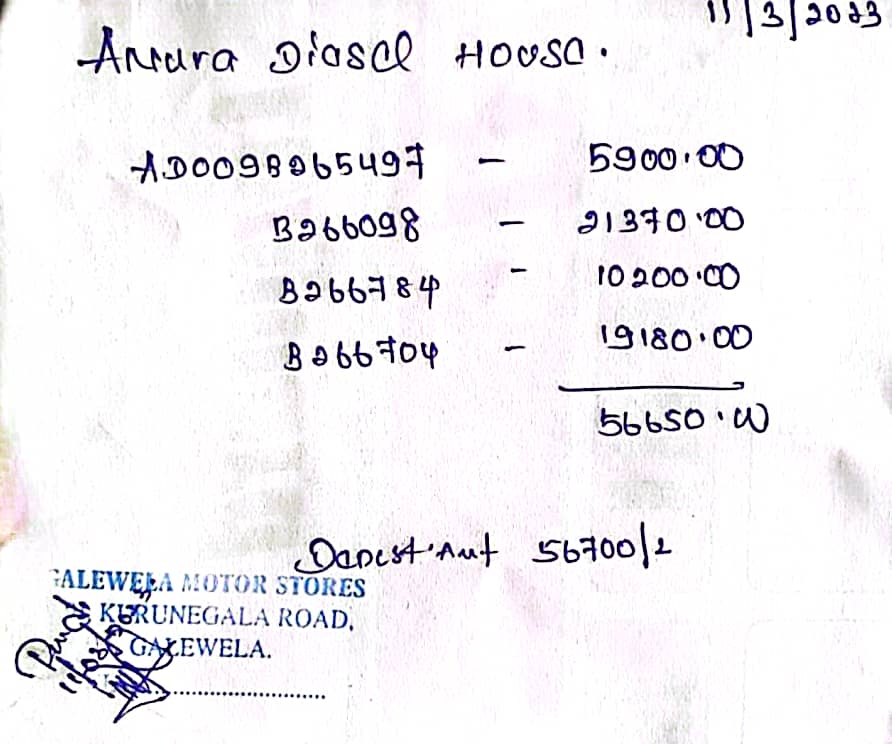 11/3/2023
Anura Diesel House.
AD009B265497 - 5900.00
B266098 - 21370.00
B266784 - 10200.00
B266704 - 19180.00
56650.00
56700/=
GALEWELA MOTOR STORES
KURUNEGALA ROAD,
GALEWELA.